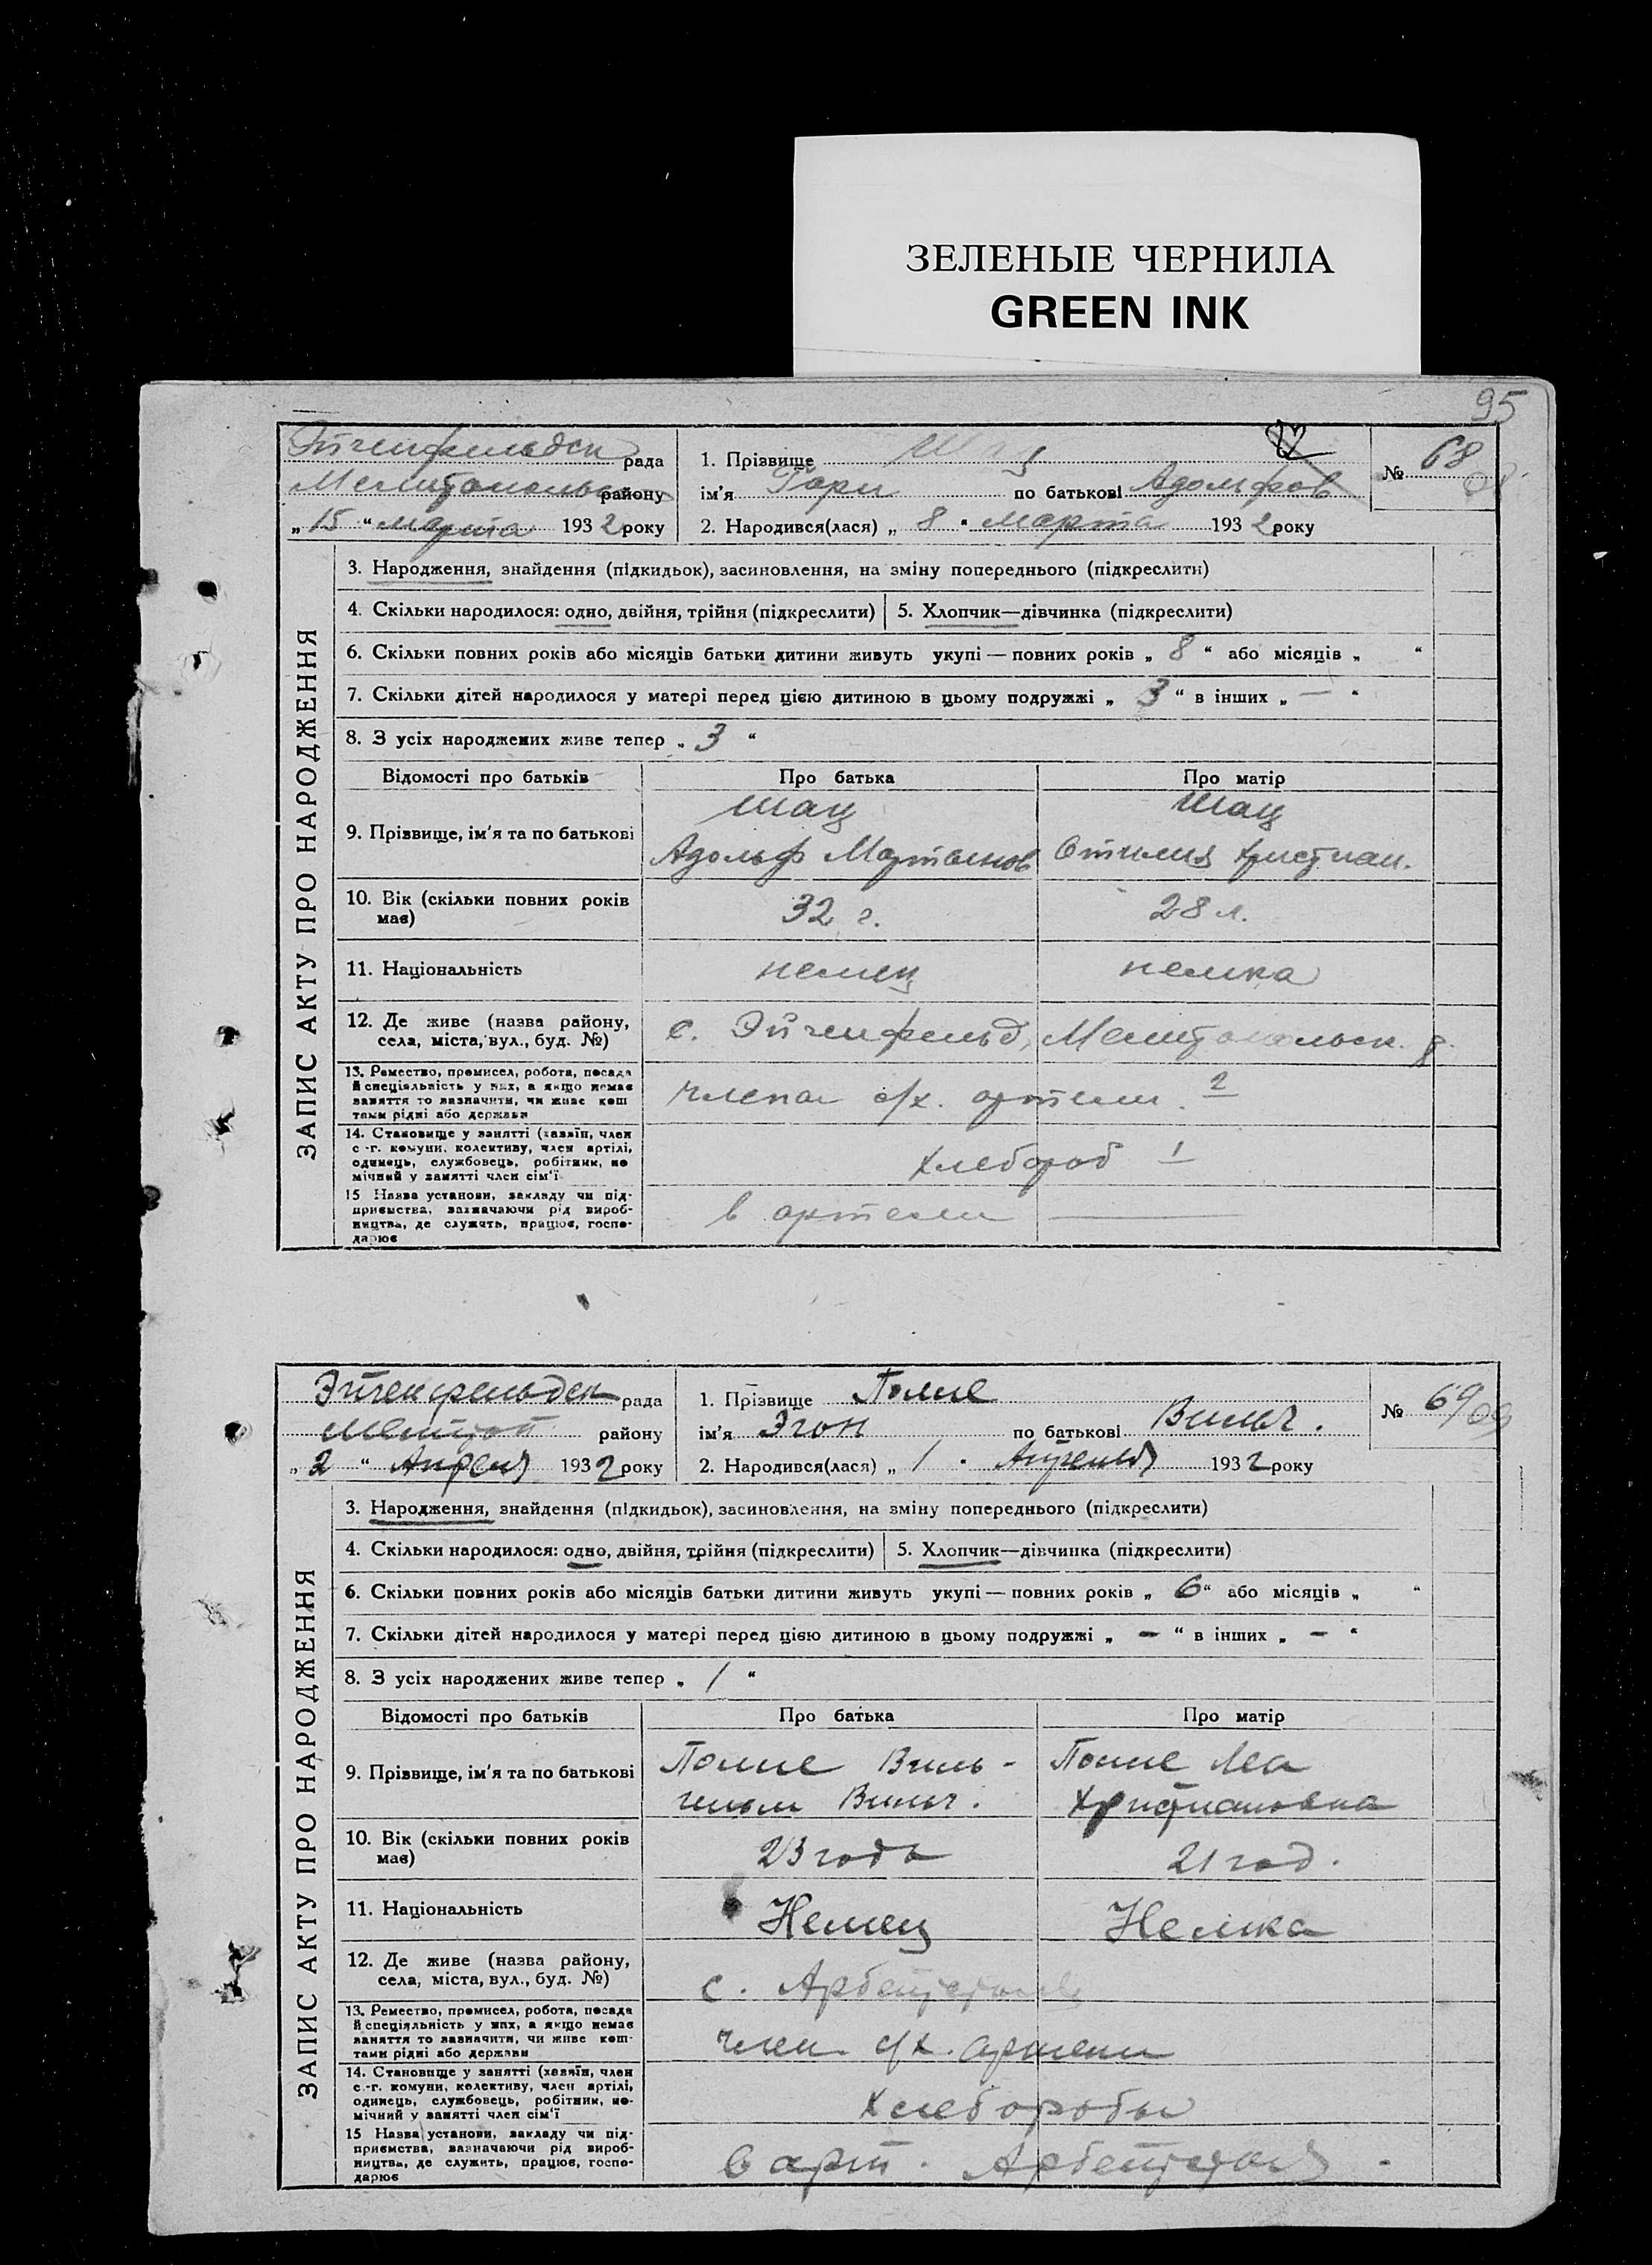 ЗЕЛЕНЫЕ ЧЕРНИЛА
GREEN INK
95
Эйгенфельдск рада
Мелитопольск району
„ 15 “ марта 1932 року
1. Прізвище Шац
ім'я Гари по батькові Адольфов
2. Народився(лася) „ 8 “ марта 1932 року
№ 68
ЗАПИС АКТУ ПРО НАРОДЖЕННЯ
3. Народження, знайдення (підкидьок), засиновлення, на зміну попереднього (підкреслити)
4. Скільки народилося: одно, двійня, трійня (підкреслити) 5. Хлопчик—дівчинка (підкреслити)
6. Скільки повних років або місяців батьки дитини живуть укупі — повних років „ 8 “ або місяців „ “
7. Скільки дітей народилося у матері перед цією дитиною в цьому подружжі „ 3 “ в інших „ — “
8. З усіх народжених живе тепер „ 3 “
Відомості про батьків Про батька Про матір
9. Прізвище, ім'я та по батькові
Шац Шац
Адольф Мартынов Отилия Христиан.
10. Вік (скільки повних років
має)
32 г. 28 л.
11. Національність немец немка
12. Де живе (назва району,
села, міста, вул., буд. №)
с. Эйгенфельд, Мелитопольск. р.
13. Ремество, промисел, робота, посада
й спеціяльність у них, а якщо немає
заняття то зазначити, чи живе кош
тами рідні або держави
члена с/х. артели. 2
14. Становище у занятті (хазяїн, член
с.-г. комуни, колективу, член артілі,
одинець, службовець, робітник, по
мічний у занятті член сім'ї
хлебороб 1
15 Назва установи, закладу чи під-
приємства, зазначаючи рід вироб-
ництва, де служить, працює, госпо-
дарює
в артели —
Эйгенфельдск рада
Мелитоп району
„ 2 “ Апреля 1932 року
1. Прізвище Полле
ім'я Эгон по батькові Вильг.
2. Народився(лася) „ 1 “ Апреля 1932 року
№ 69
ЗАПИС АКТУ ПРО НАРОДЖЕННЯ
3. Народження, знайдення (підкидьок), засиновлення, на зміну попереднього (підкреслити)
4. Скільки народилося: одно, двійня, трійня (підкреслити) 5. Хлопчик—дівчинка (підкреслити)
6. Скільки повних років або місяців батьки дитини живуть укупі — повних років „ 6 “ або місяців „ “
7. Скільки дітей народилося у матері перед цією дитиною в цьому подружжі „ — “ в інших „ — “
8. З усіх народжених живе тепер „ 1 “
Відомості про батьків Про батька Про матір
9. Прізвище, ім'я та по батькові
Полле Виль- Полле Леа
гельм Вильг. Христиановна
10. Вік (скільки повних років
має)
23 года 21 год.
11. Національність Немец Немка
12. Де живе (назва району,
села, міста, вул., буд. №)
с.
13. Ремество, промисел, робота, посада
й спеціяльність у них, а якщо немає
заняття то зазначити, чи живе кош-
тами рідні або держави
член с/х. артели
14. Становище у занятті (хазяїн, член
с.-г. комуни, колективу, член артілі,
одинець, службовець, робітник, по-
мічний у занятті член сім'ї
Хлеборобы
15 Назва установи, закладу чи під-
приємства, зазначаючи рід вироб-
ництва, де служить, працює, госпо-
дарює
в арт.